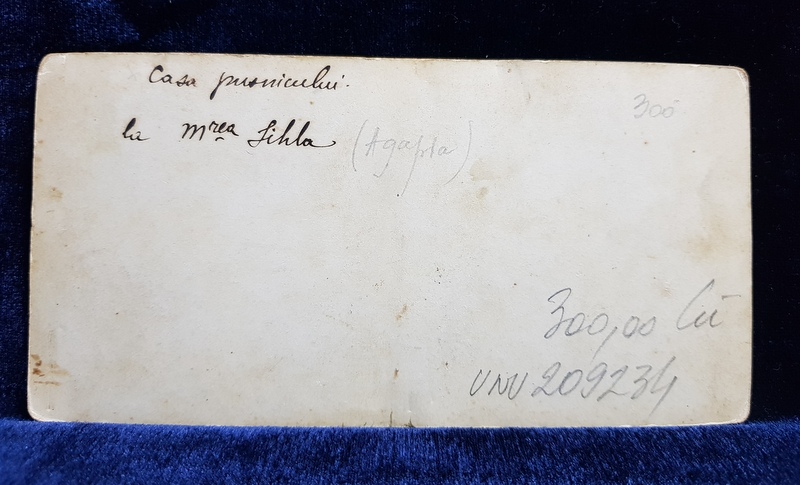 Casa pusnicului.
300
la Mrea Sihla (Agapia)
300,00 Lei
UNU 209234